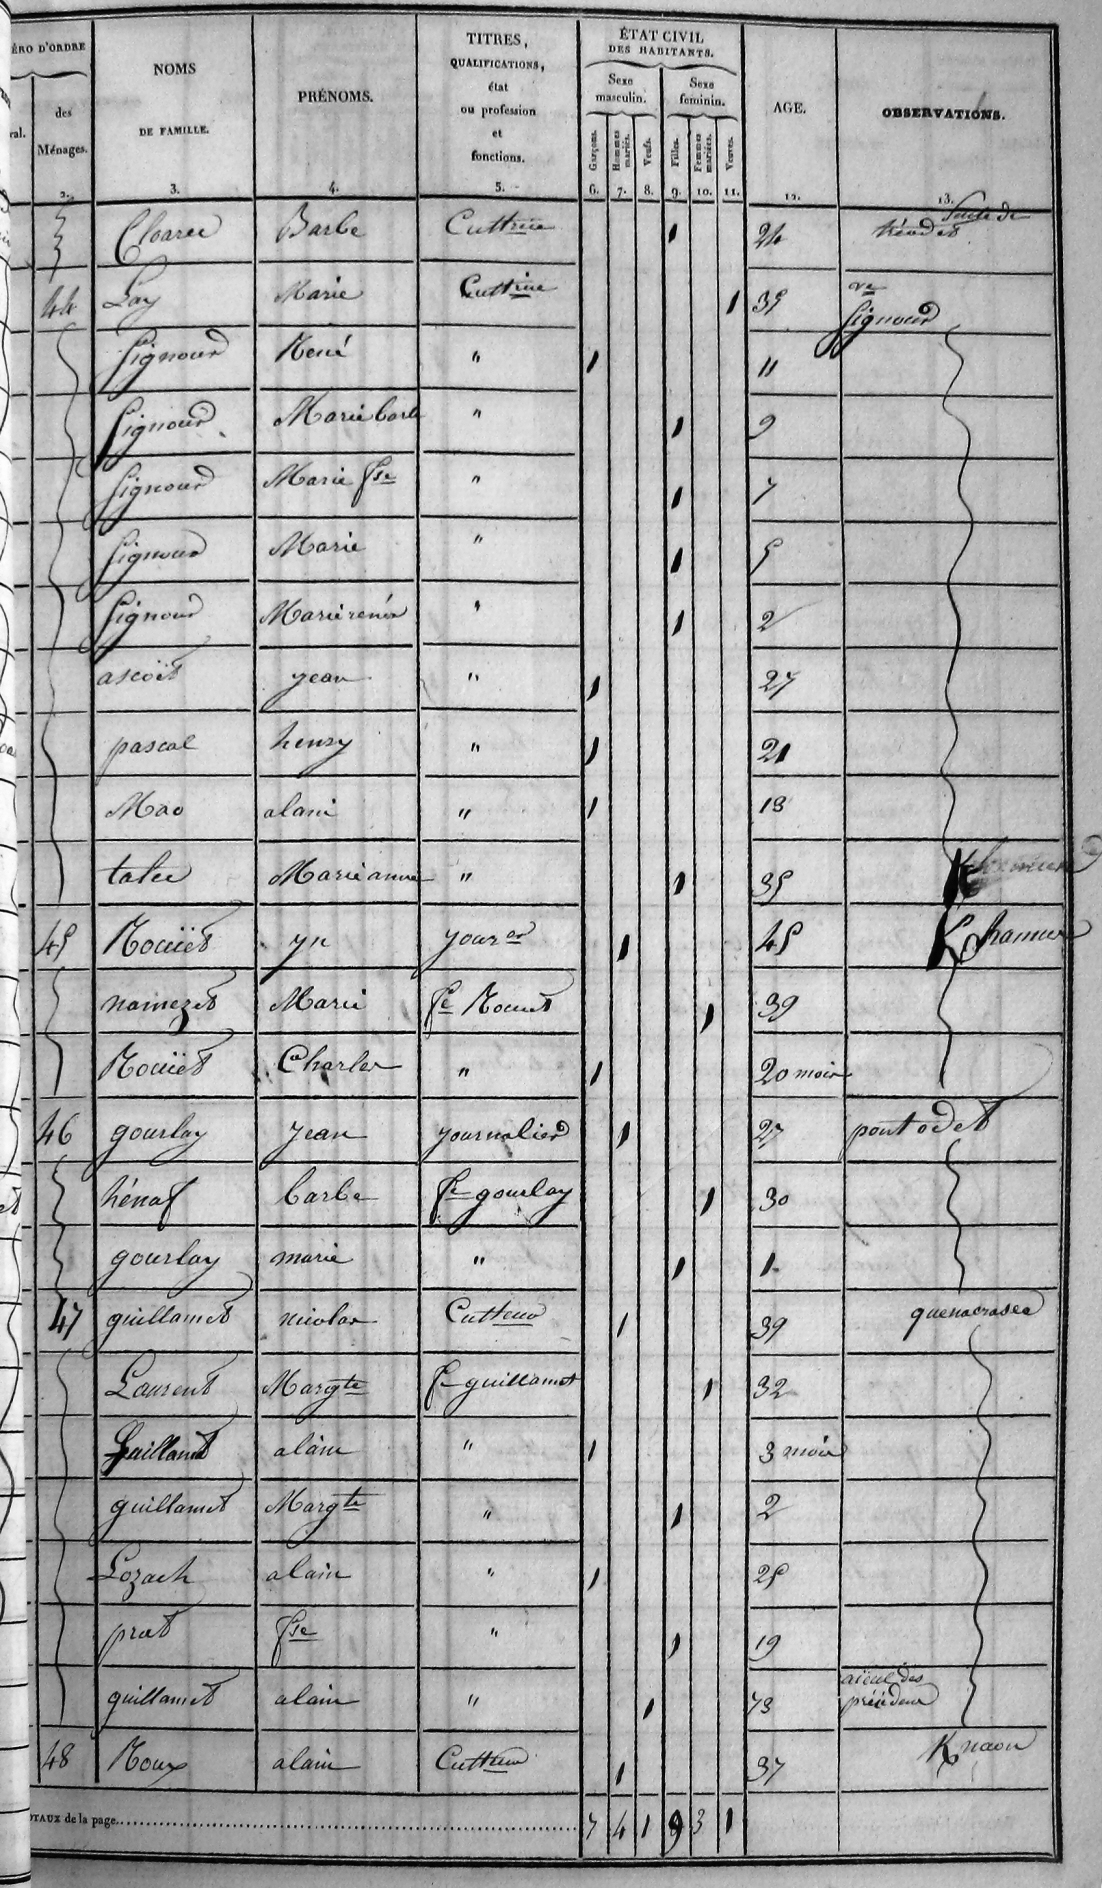 ÉRO D'ORDRE
ral.
des Ménages.
2.
NOMS
DE FAMILLE.
3.
PRÉNOMS.
4.
TITRES,
QUALIFICATIONS,
état
ou profession
et
fonctions.
5.
ÉTAT CIVIL
DES HABITANTS.
Sexe masculin.
Sexe feminin.
Garçons. Hommes mariés. Veufs. Filles. Femmes mariées. Veuves.
6. 7. 8. 9. 10. 11.
AGE.
12.
OBSERVATIONS.
13.
Cloarec Barbe Cultrice 1 24 Suite de tréodet
44 Lay Marie Cultrice 1 35 ve Signour
Signour René " 1 11
Signour Marie barbe " 1 9
Signour Marie fse " 1 7
Signour Marie " 1 5
Signour Marie renée " 1 2
ascoët jean " 1 27
pascal henry " 1 21
Mao alain " 1 18
talec Marie anne " 1 35
45 Rouiet yn jourer 1 45
namezet Marie fe Rouiet 1 39
Rouiet Charles " 1 20 mois
46 gourlay jean journalier 1 27 pont odet
hénaf barbe fe gourlay 1 30
gourlay marie " 1 1
47 guillamet nicolas Cultteur 1 39 quenacrasec
Laurent Margte fe guillamet 1 32
guillamet alain " 1 3 mois
guillamet Margte " 1 2
Lozach alain " 1 25
prat fse " 1 19
guillamet alain " 1 73 aieul des précédens
48 Roux alain Cultteur 1 37 Knaou
OTAUX de la page 7 4 1 9 3 1